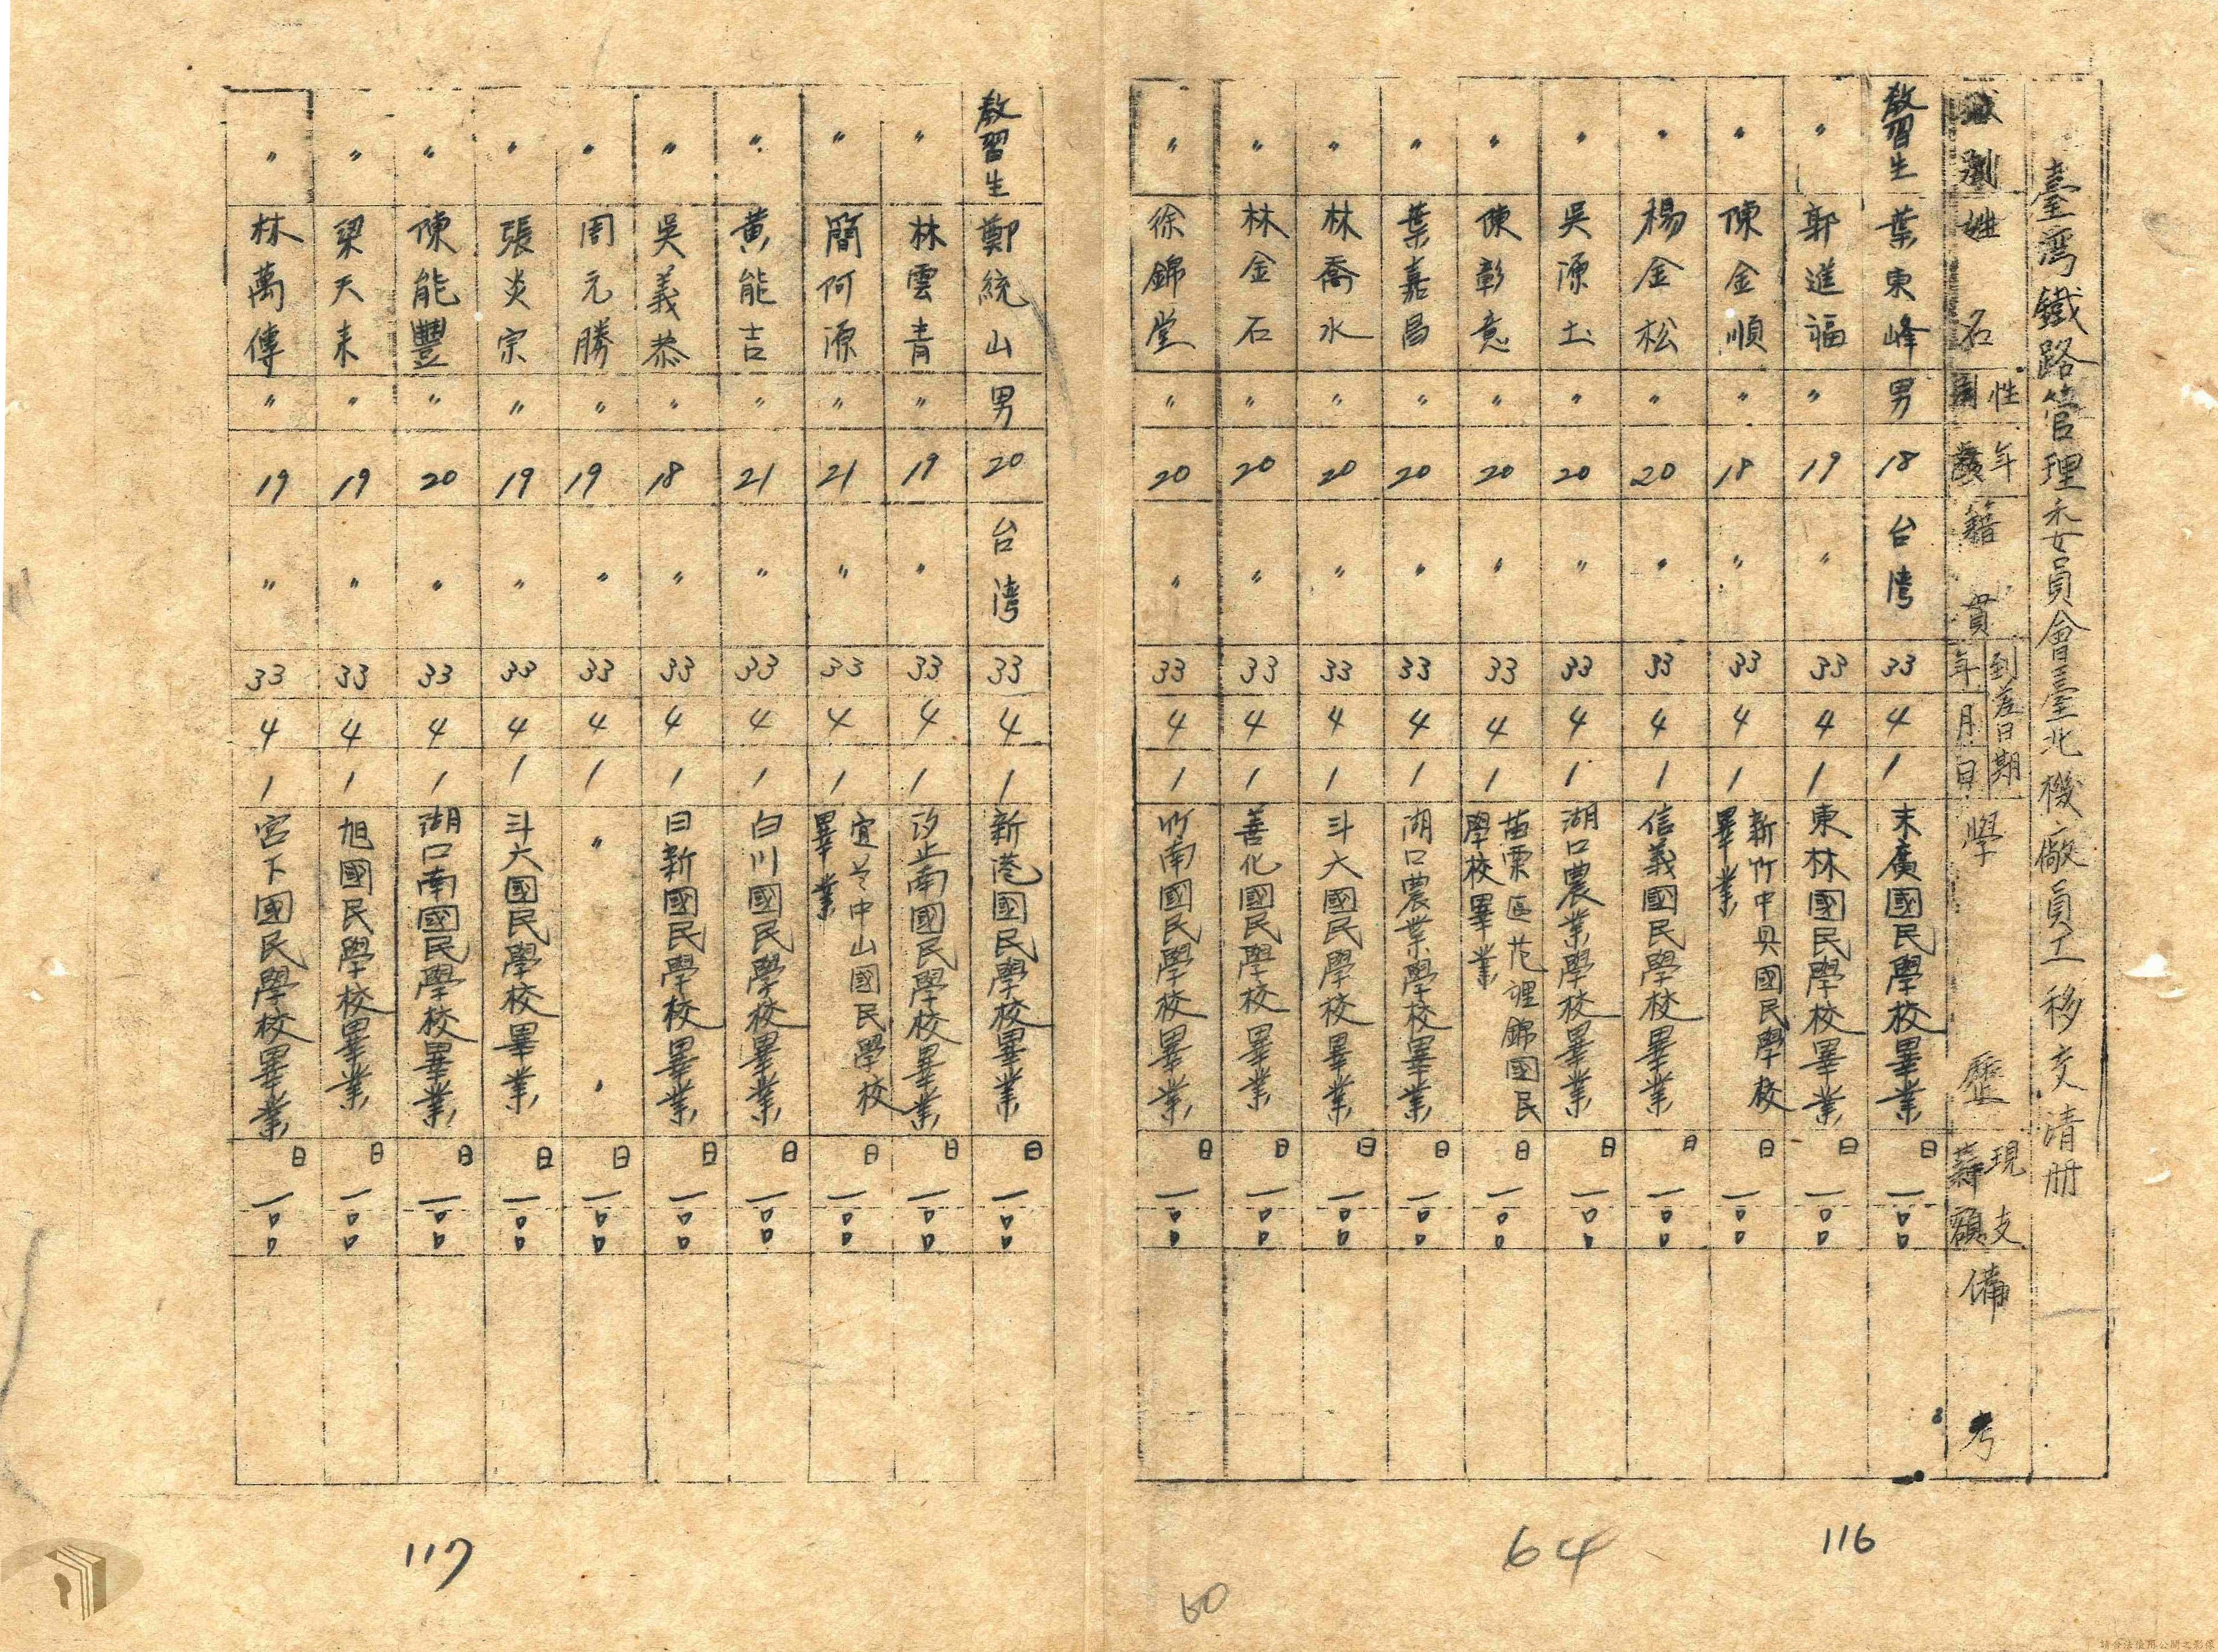 臺灣鐵路管理委員會臺北機廠員工移交清册
職別 姓名 性別 年齡 籍貫 到差日期 年月日 學歷 現支薪額 備考
教習生 葉東峰 男 18 台湾 33 4 1 末廣國民學校畢業 日一〇〇
〃 郭進福 〃 19 〃 33 4 1 東林國民學校畢業 日一〇〇
〃 陳金順 〃 18 〃 33 4 1 新竹中興國民學校畢業 日一〇〇
〃 楊金松 〃 20 〃 33 4 1 信義國民學校畢業 日一〇〇
〃 吳源土 〃 20 〃 33 4 1 湖口農業學校畢業 日一〇〇
〃 陳彰意 〃 20 〃 33 4 1 苗栗區苑裡錦國民學校畢業 日一〇〇
〃 葉嘉昌 〃 20 〃 33 4 1 湖口農業學校畢業 日一〇〇
〃 林喬水 〃 20 〃 33 4 1 斗六國民學校畢業 日一〇〇
〃 林金石 〃 20 〃 33 4 1 善化國民學校畢業 日一〇〇
〃 徐錦堂 〃 20 〃 33 4 1 竹南國民學校畢業 日一〇〇
116
64
60
教習生 鄭統山 男 20 台湾 33 4 1 新港國民學校畢業 日一〇〇
〃 林雲青 〃 19 〃 33 4 1 汐止南國民學校畢業 日一〇〇
〃 簡阿源 〃 21 〃 33 4 1 宜兰中山國民學校畢業 日一〇〇
〃 黄能吉 〃 21 〃 33 4 1 白川國民學校畢業 日一〇〇
〃 吳義恭 〃 18 〃 33 4 1 日新國民學校畢業 日一〇〇
〃 周元勝 〃 19 〃 33 4 1 〃 〃 日一〇〇
〃 張炎宗 〃 19 〃 33 4 1 斗六國民學校畢業 日一〇〇
〃 陳能豐 〃 20 〃 33 4 1 湖口南國民學校畢業 日一〇〇
〃 梁天来 〃 19 〃 33 4 1 旭國民學校畢業 日一〇〇
〃 林萬傳 〃 19 〃 33 4 1 宮下國民學校畢業 日一〇〇
117